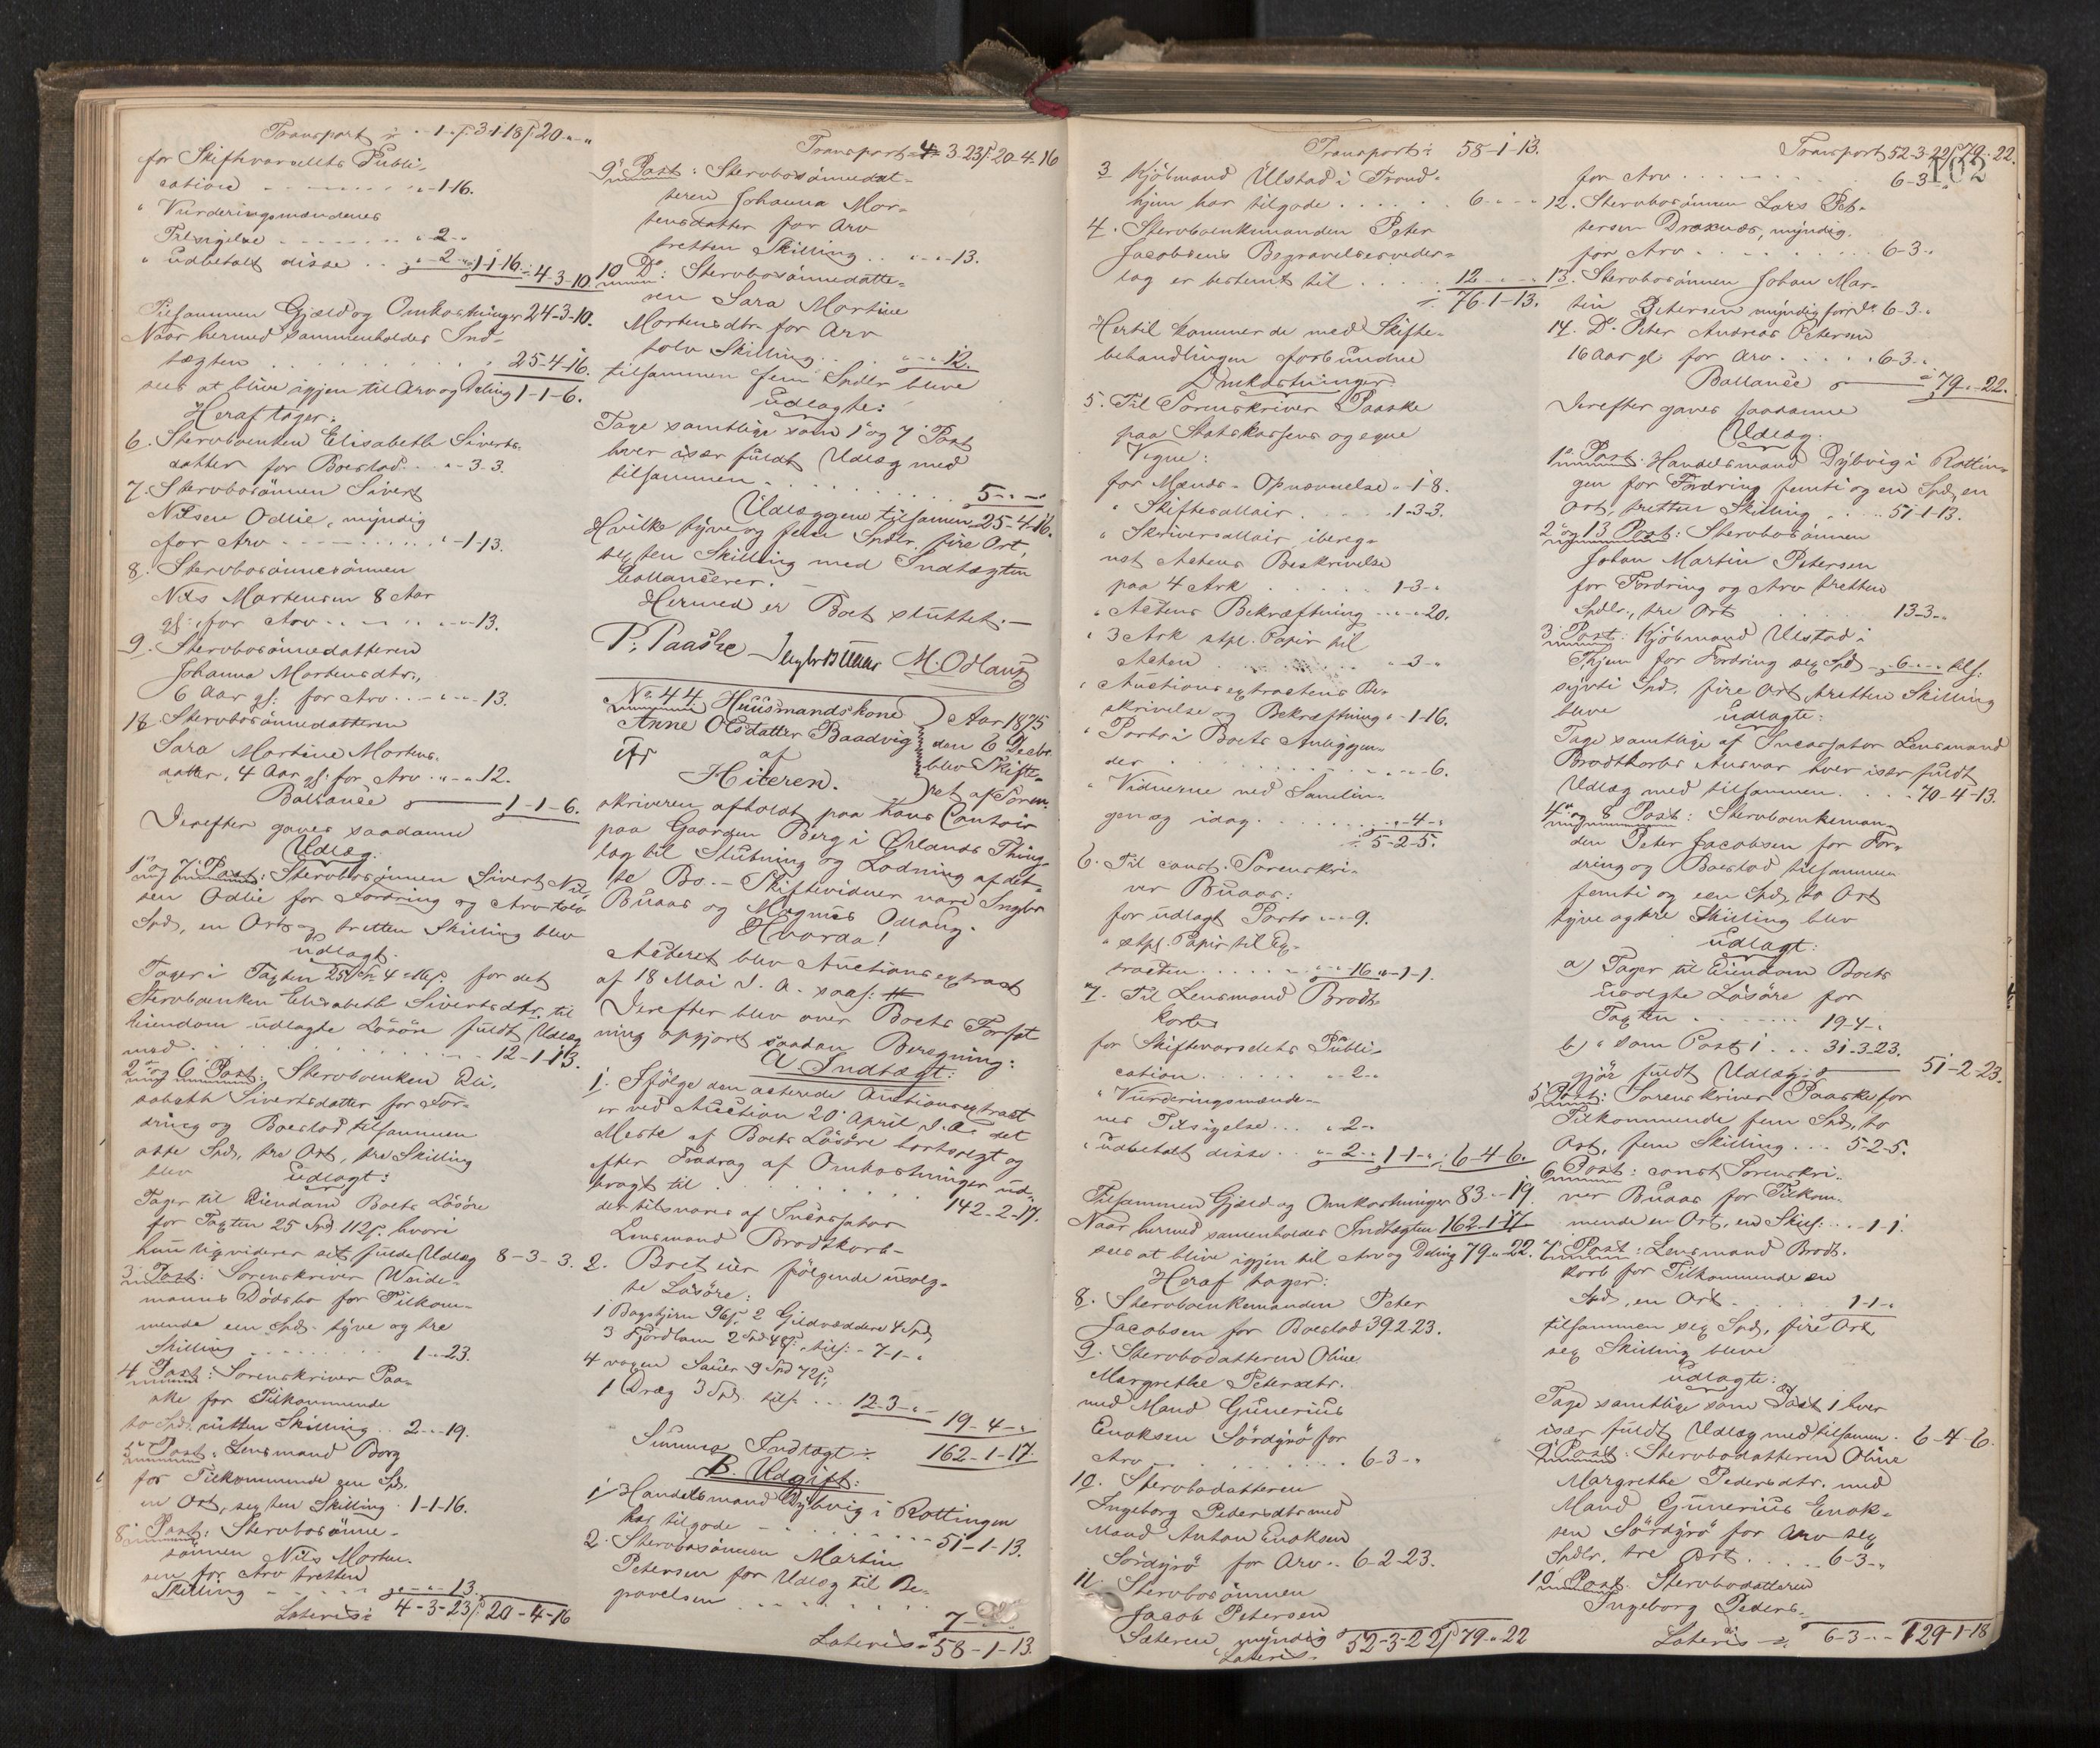 Transport ÷ „-1„ ƒ. 3-1-18 ƒ. 20„-„
for Skiftevarselets Publi-
cation - - - - - - - „-1-16.
" Vurderingsmændenes
Tilsigelse - - - - - - „ 2-„
" udbetalt disse . . „-2-„ 1-1-16. ÷ 4-3-10.
Tilsammen Gjæld og Omkostninger 24-3-10.
Naar hermed sammenholdes Ind-
tægten . . . . . . . . . 25-4-16.
sees at blive igjen til Arv og Deling 1-1-6.
Heraf tager:
6. Stervboenken Elisabeth Siverts-
datter for Boeslod . . „-3-3.
7. Stervbosönnen Sivert
Nilsen Odlie, myndig
for Arv - - - - - - - „-1-13.
8. Stervbosönnesönnen
Nils Martensen 8 Aar
gl: for Arv . . - . . „-„-13.
9. Stervbosönnedatteren
Johanna Mortensdtr.,
6 Aar gl: for Arv . . - „-„-13.
10. Stervbosönnedatteren
Sara Martine Mortens-
datter, 4 Aar gl: for Arv . „-„-12.
Ballance 1-1-6.
Derefter gaves saadanne
Udlæg.
1e og 7e Post: Stervbosönnen Sivert Nil-
sen Odlie for Fordring og Arv tolv
Spd, en Ort og tretten Skilling blev
udlagt.
Tager i Taxten 25 Spd 4 „ 16 ƒ. for det
Stervboenken Elisabeth Sivertsdtr. til
Eiendom udlagte Lösöre fuldt Udlæg
med . . . . . . . . . . 12-1-13.
2en og 6 Post: Stervboenken Eli-
sabeth Sivertsdatter for For-
dring og Boeslod tilsammen
otte Spd, tre Ort, tre Skilling
blev udlagt:
Tager til Eiendom Boets Lösöre
for Taxten 25 Spd 112 ƒ. hvori
hun liqviderer sit fulde Udlæg 8-3-3.
3e Post: Sorenskriver Weide-
manns Dödsbo for Tilkom-
mende een Spd. tyve og tre
Skilling . . . . . . . . 1-„-23.
4e Post: Sorenskriver Paa-
ske for Tilkommende
to Spd. nitten Skilling . . 2-„-19.
5e Post: Lensmand Borg
for Tilkommende een Spd.
en Ort, sexten Skilling . 1-1-16.
8e Post: Stervbosönne-
sönnen Nils Morten-
sen for Arv tretten
Skilling - - - - - „-„-13.
Lateris ÷ 4-3-23 ƒ. 20-4-16
Transport 4-3-23 ƒ. 20-4-16
9e Post: Stervbosönnedat-
teren Johanna Mor-
tensdatter for Arv
tretten Skilling . . „-„-13.
10 Do: Stervbosönnedatte-
ren Sara Martine
Mortensdtr. for Arv
tolv Skilling . . . „-„-12.
tilsammen fem Spdlr. bleve
udlagte:
Tage samtlige som 1e og 7e Post
hver især fuldt Udlæg med
tilsammen - . . . . . . . . 5-„-„
Udlæggene tilsamen 25-4-16.
Hvilke tyve og fem Spdlr. fire Ort,
sexten Skilling med Indtægten
ballancerer. –
Hermed er Boet sluttet. –
P. Paaske Ingbr Buaas M. Odlaug
No. 44. Huusmandskone
Anne Olsdatter Baadvig
af
Hiteren.
Aar 1875
den 6 Decbr.
blev Skifte-
ret af Soren-
skriveren afholdt paa hans Contoir
paa Gaarden Berg i Ørlands Thing-
lag til Slutning og Lodning af det-
te Bo. – Skiftevidner vare Ingbr
Buaas og Magnus Odlaug.
Hvorda!
Acteret blev Auctionsextract
af 18 Mai d. A. saal: #
Derefter blev over Boets Forfat-
ning opgjort saadan Beregning:
A Indtægt:
1. Ifölge den acterede Auctionsextract
er ved Auction 20e April d. A. det
Meste af Boets Lösöre bortsolgt og
efter Fradrag af Omkostninger ud-
bragt til . . . . . . . . 142-2-17.
der tilsvares af Incassator
Lensmand Brodtkorb -
2. Boet eier fölgende usolg-
te Lösöre:
1 Bagstjern 96 ƒ. 2 Gildvæddere 4 Spd,
3 Fjordlam 2 Spd 48 ƒ. tils: - 7-1-„
4 voxen Sauer 9 Spd 72 ƒ,
1 Dræg 3 Spd. tils: . . . 12-3-„ - 19-4-„
Summa Indtægt ÷ 162-1-17.
B. Udgift:
1. Handelsmand Dybvig i Rottingen
har tilgode - . . . . . . . 51-1-13.
2. Stervbosönnen Martin
Petersen for Udlæg til Be-
gravelsen . . . . . . . 7-
Lateris ÷ 58-1-13.
Transport ÷ 58-1-13.
3. Kjöbmand Ulstad i Trond-
hjem har tilgode . . . . . . 6-„-„
4. Stervboenkemanden Peter
Jacobsens Begravelsesveder-
lag er bestemt til . . . . 12-„-„
÷ 76-1-13.
Hertil kommer de med Skifte-
behandlingen forbundne
Omkostninger:
5. Til Sorenskriver Paaske
paa Statskassens og egne
Vegne:
for Mænds-Opnævnelse „-1-8.
" Skiftesallair . . . . . 1-3-3.
" Skriversallair ibereg-
net Actens Beskrivelse
paa 4 Ark . . . . . . 1-3-„
" Actens Bekræftning . „-„-20.
" 3 Ark stpl. Papir til
Acten . . . . . . . „-3-„
" Auctionsextractens Be-
skrivelse og Bekræftning „-1-16.
" Porto i Boets Anliggen-
der . . . . . . . . „-„-6.
" Vidnerne ved Samlin-
gen og idag . . . . . „-4-„
÷ 5-2-5.
6. Til const. Sorenskri-
ver Buaas:
for udlagt Porto „-„-9.
" stpl. Papir til Ex-
tracten . . . . . . . „-„-16 „-1-1.
7. Til Lensmand Brodt-
korb
for Skiftevarselets Publi-
cation . . . . . . „-2-„
" Vurderingsmænde-
nes Tilsigelse . . . „-2-„
" udbetalt disse . . „-2-„ 1-1-„ ÷ 6-4-6.
Tilsammen Gjæld og Omkostninger 83-„-19.
Naar hermed samenholdes Indtægten 162-1-17
sees at blive igjen til Arv og Deling 79-„-22.
Heraf tager:
8. Stervboenkemanden Peter
Jacobsen for Boeslod 39-2-23.
9. Stervbodatteren Oline
Margrethe Petersdtr.
med Mand Gunerius
Enoksen Sördyrö for
Arv . . . . . . . . . . 6-3-„
10. Stervbodatteren
Ingeborg Petersdtr. med
Mand Anton Enoksen
Sördyrö for Arv . . 6-2-23.
11. Stervbosönnen
Jacob Petersen
Sæteren, myndig 52-3-22 ƒ. 79-„-22
Lateris
Transport 52-3-22 ƒ. 79-„-22.
102
for Arv . . . . . . . . 6-3-„
12. Stervbosönnen Lars Pet-
tersen Draxnæs, myndig.
for Arv . . . . . . . . . 6-3-„
13. Stervbosönnen Johan Mar-
tin Petersen myndig for do 6-3-„
14. Do Peter Andreas Petersen
16 Aar gl. for Arv . . . . 6-3-„
Ballance ÷ 79-„-22.
Derefter gaves saadanne
Udlæg.
1e Post. Handelsmand Dybvig i Rottin-
gen for Fordring femti og en Spd, en
Ort, tretten Skilling . . . 51-1-13.
2e og 13 Post: Stervbosönnen
Johan Martin Petersen
for Fordring og Arv tretten
Spdlr., tre Ort 13-3-„
3e Post: Kjöbmand Ulstad i
Thjem for Fordring sex Spd 6-„-„ tils:
sytti Spd. fire Ort, tretten Skilling
bleve udlagte:
Tage samtlige af Incassator Lensmand
Brodtkorbs Ansvar hver især fuldt
Udlæg med tilsammen . . . 70-4-13.
4e og 8 Post: Stervboenkeman-
den Peter Jacobsen for For-
dring og Boeslod tilsammen
femti og een Spd, to Ort
tyve og tre Skilling blev
udlagt:
a) Tager til Eiendom Boets
usolgte Lösöre for
Taxten . . . . . . . 19-4-„
b) „ som Post 1 . . . 31-3-23.
gjör fuldt Udlæg 51-2-23.
5 Post: Sorenskriver Paaske for
Tilkommende fem Spd, to
Ort, fem Skilling . . . 5-2-5.
6 Post: const Sorenskri-
ver Buaas for Tilkom-
mende en Ort, en Skil: . . „-1-1.
7. Post: Lensmand Brodt-
korb for Tilkommende en
Spd, en Ort . . . . . 1-1-„
tilsammen sex Spd, fire Ort,
sex Skilling bleve
udlagte:
Tage samtlige som Post 1 hver
især fuldt Udlæg med tilsamen . 6-4-6.
9e Post: Stervbodatteren Oline
Margrethe Pedersdtr. med
Mand Gunerius Enok-
sen Sördyrö for Arv sex
Spdlr, tre Ort . . . . . 6-3-„
10 Post. Stervbodatteren
Ingeborg Peders-
Lateris ÷ 6-3-„ - 129-1-18